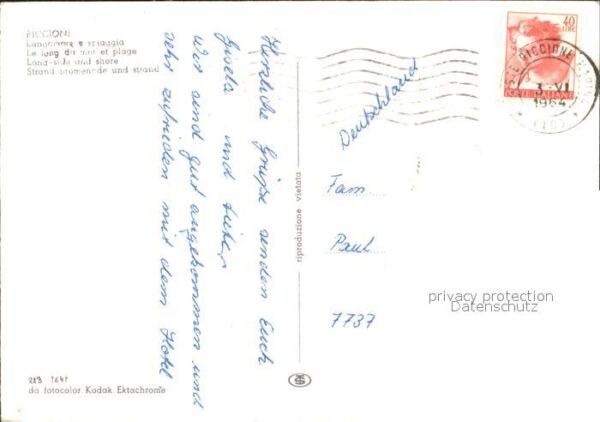 RICCIONE
Lungomare e spiaggia
Le long du mer et plage
Long-side und shore
Strand promenade und strand
Herzliche Grüße senden Euch
Gisela und Dieter,
wir sind gut angekommen und
sehr zufrieden mit dem Hotel
213 1641
da fotocolor Kodak Ektachrome
riproduzione vietata
40
LIRE
POSTE ITALIANE
RICCIONE
3-VI
1964
(FO)
Deutschland
Fam
Paul
7737
privacy protection
Datenschutz